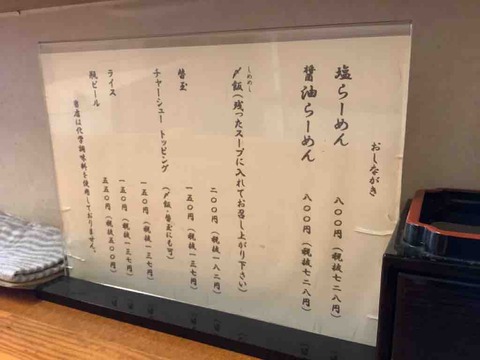 おしながき
塩らーめん 八〇〇円（税抜七二八円）
醤油らーめん 八〇〇円（税抜七二八円）
しめめし
〆飯（残ったスープに入れてお召し上がり下さい）
二〇〇円（税抜一八二円）
替玉 一五〇円（税抜一三七円）
チャーシュー トッピング（〆飯・替玉にも可）
一五〇円（税抜一三七円）
ライス 一五〇円（税抜一三七円）
瓶ビール 五五〇円（税抜五〇〇円）
当店は化学調味料を使用しておりません。